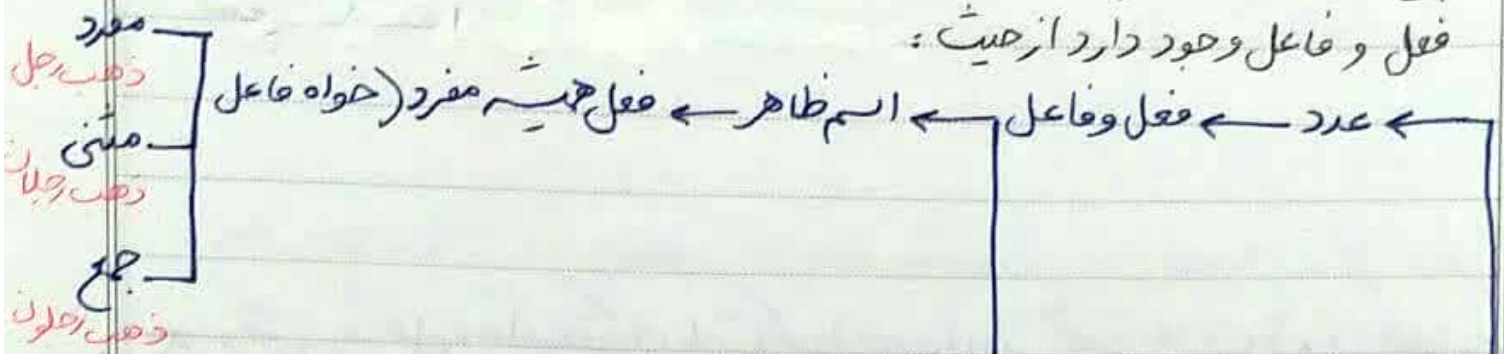 فعل و فاعل وجود دارد از حیث :
← عدد ← فعل و فاعل ← اسم ظاهر ← فعل همیشه مفرد (خواه فاعل
مفرد
ذهب رجل
مثنی
ذهب رجلان
جمع
ذهب رجلون